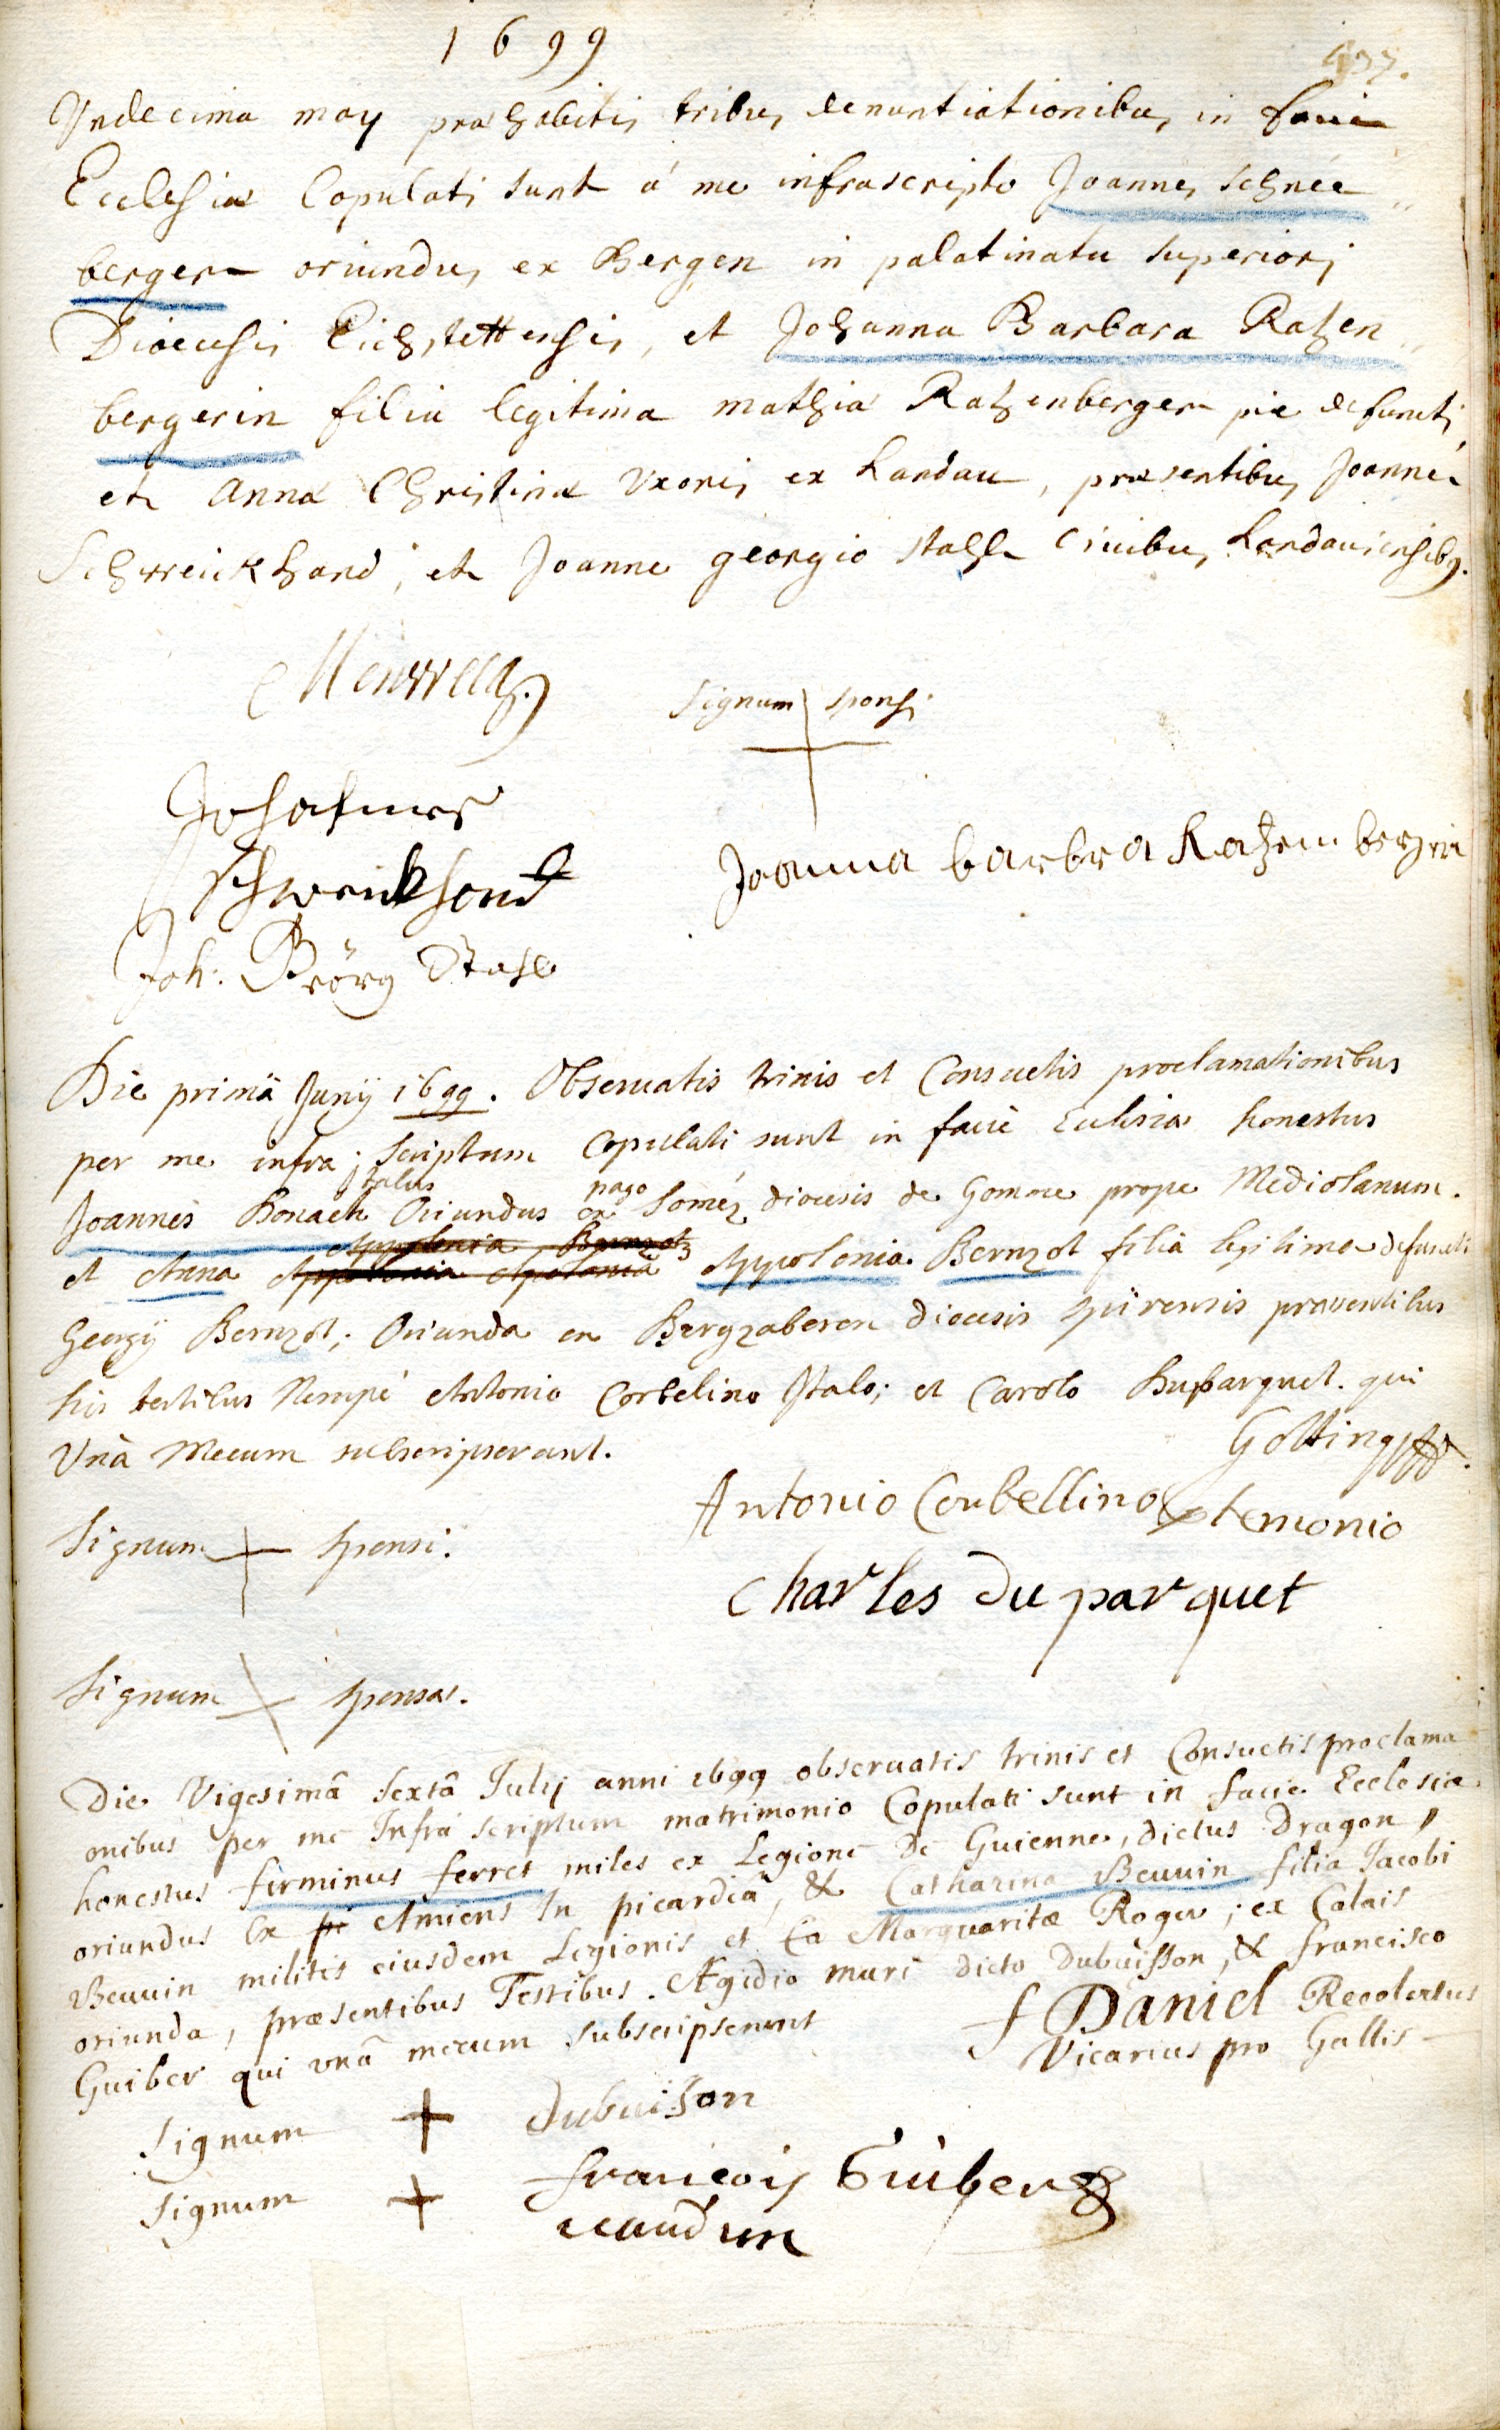 1699
437.
Undecima may præhabitis tribus denuntiationibus in facie
Ecclesiæ Copulati sunt á me infrascripto Joannes Schnee
berger oriundus ex Bergen in palatinatu superiori
Diœcesis Eichstettensis, et Johanna Barbara Ratzen
bergerin filia legitima mathiæ Ratzenberger pie defuncti
et Annæ Christinæ Uxoris ex Landau, præsentibus Joanne
Schweickhard, et Joanne georgio stahl Civibus Landaviensibq.
Signum sponsi
Johannes
Schweickhard
Joanna barbra Ratzenbergerin
Joh: Görg Stahl
Die primâ Junÿ 1699. Observatis trinis et Consuetis proclamationibus
per me infra scriptum Copulati sunt in facie Ecclesiæ honestus
Italus pago
Joannes Bonack Oriundus ex Soméz diœcesis de Gomme prope Mediolanum.
et Anna Appolonia Bernzot filia legitima defuncti
Georgÿ Bernzot; Oriunda ex Bergzaberen diœcesis spirensis præsentibus
his testibus Nempé Antonio Corbelino Italo; et Carolo Duparquet. qui
Unà Mecum subscripserunt.
Gotting
Antonio Corbellino testemonio
Signum sponsi.
Charles du parquet
Signum sponsæ.
Die Vigesimâ Sextâ Julij anni 1699 observatis trinis et Consuetis proclama
onibus per me Infrá scriptum matrimonio Copulati sunt in facie Ecclesiæ
honestus firminus ferret miles ex Legione De Guienne, dictus Dragon,
oriundus Ex pi Amiens In picardiâ, & Catharina Beuuin filia Jacobi
Beuuin militis eiusdem Legionis et Ca Marguaritæ Roger; ex Calais
oriunda, præsentibus Testibus. Ægidio muri dicto Dubuisson, & francisco
Guiber qui unâ mecum subscripserunt
f Daniel Recolectus
Vicarius pro Gallis
Signum + dubuisson
Signum + francois Guiber